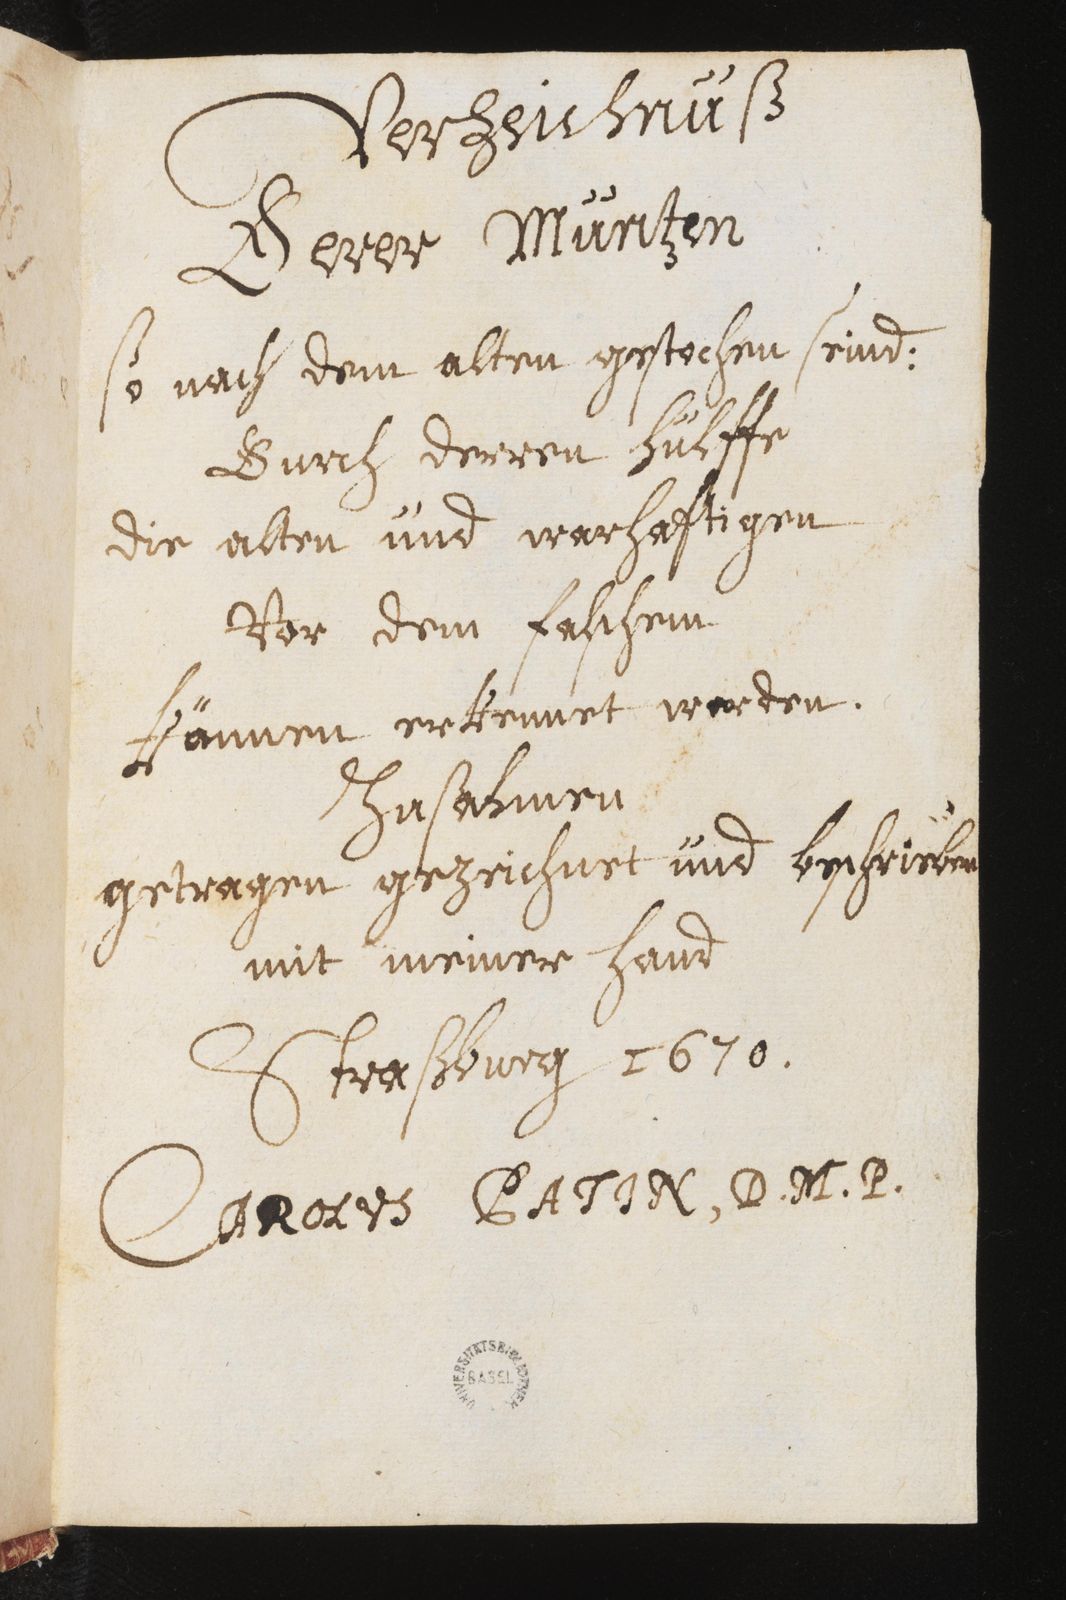 Verzeichnüß
Derer Müntzen
so nach dem alten gestochen seind:
Durch derren hülffe
die alten ünd warhafftigen
Vor dem falschem
können erkennet werden.
Zusahmen
getragen gezeichnet ünd beschrieben
mit meiner hand
Straßburg 1670.
CAROLVS PATIN, D.M.P.
UNIVERSITÄTSBIBLIOTHEK
BASEL